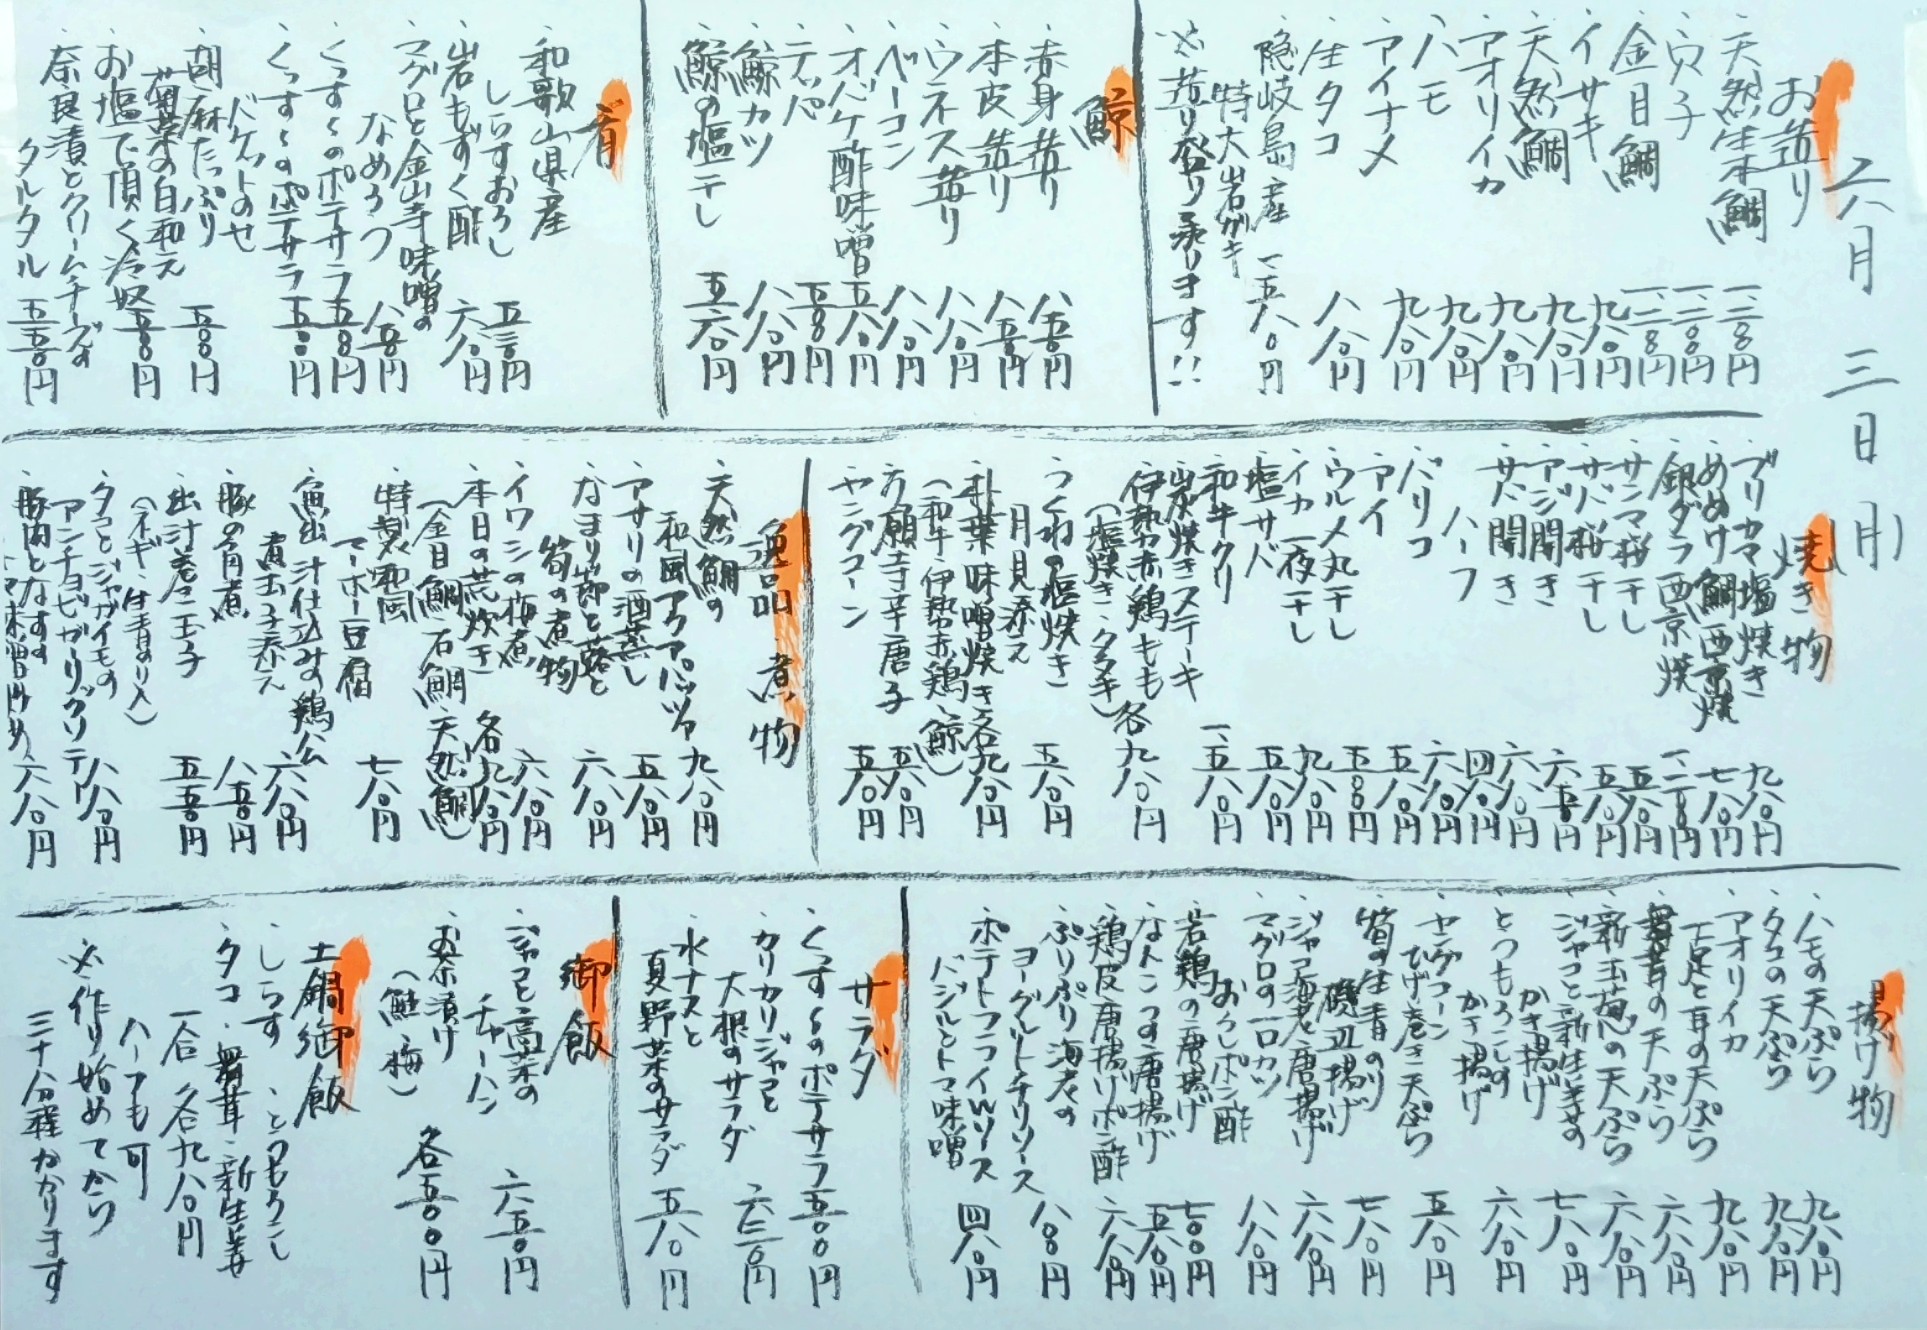 六月三日(月)
お造り
・天然生本鯛 一、二三〇円
・穴子 一、二三〇円
・金目鯛 一、二三〇円
・イサキ 九八〇円
・天然鯛 九八〇円
・アオリイカ 九八〇円
・ハモ 九八〇円
・アイナメ 九八〇円
・生タコ 八八〇円
・隠岐島産
特大岩がき 一、五八〇円
※造り盛り承ります!!
鯨
・赤身造り 八五〇円
・本皮造り 八五〇円
・ウネス造り 八八〇円
・ベーコン 八八〇円
・オバケ酢味噌 五八〇円
・テッパ 五五〇円
・鯨カツ 八八〇円
・鯨の塩干し 五六〇円
肴
・和歌山県産
しらすおろし 五三〇円
・岩もずく酢 六八〇円
・マグロと金山寺味噌の
なめろう 八五〇円
・くっすくのポテサラ 五五〇円
・くっすくのポテサラ
バケットのせ 五五〇円
・胡麻たっぷり
菊菜の白和え 五五〇円
・お塩で頂く冷奴 五五〇円
・奈良漬とクリームチーズの
タルタル 五五〇円
焼き物
・ブリカマ塩焼き 九八〇円
・めぬけ鯛西京焼 七八〇円
・銀ダラ西京焼 一、二三〇円
・サンマ桜干し 五八〇円
・サバ桜干し 五八〇円
・アジ開き 六五〇円
・サバ開き 六八〇円
ハーフ 四八〇円
・バリコ 六八〇円
・アイ 五八〇円
・ウルメ丸干し 五五〇円
・イカ一夜干し 九八〇円
・塩サバ 五八〇円
・和牛クリ
炭焼きステーキ 一、五八〇円
・伊勢赤鶏もも
(塩焼き・タタキ) 各九八〇円
・つくねの塩焼き
月見添え 五八〇円
・朴葉味噌焼き
(和牛・伊勢赤鶏・鯨) 各九八〇円
・万願寺辛唐子 五八〇円
・ヤングコーン 五八〇円
逸品 煮物
・天然鯛の
和風アクアパッツァ 九八〇円
・アサリの酒蒸し 五八〇円
・なまり節と蕗と
筍の煮物 六八〇円
・イワシの梅煮 六八〇円
・本日の荒炊き
(金目鯛・石鯛・天然鯛) 各九八〇円
・特製和風
マーボー豆腐 七八〇円
・魚出汁仕込みの鶏ハム
煮玉子添え 六八〇円
・豚の角煮 八五〇円
・出汁巻き玉子
(ネギ・生青のり入) 五五〇円
・タコとジャガイモの
アンチョビガーリックソテー 八八〇円
・豚肉となすの
味噌炒め 六八〇円
揚げ物
・ハモの天ぷら 九八〇円
・タコの天ぷら 九八〇円
・アオリイカ
下足と耳の天ぷら 九八〇円
・舞茸の天ぷら 六八〇円
・新玉葱の天ぷら 六八〇円
・ジャコと新生姜の
かき揚げ 七八〇円
・とうもろこしの
かき揚げ 六八〇円
・ヤングコーン
ひげ巻き天ぷら 五八〇円
・筍の生青のり
磯辺揚げ 七八〇円
・ジャコ海老唐揚げ 六八〇円
・マグロの一口カツ
おろしポン酢 八八〇円
・若鶏の唐揚げ 七〇〇円
・なんこつの唐揚げ 五八〇円
・鶏皮唐揚げポン酢 六八〇円
・ぷりぷり海老の
ヨーグルトチリソース 八〇〇円
・ポテトフライWソース
バジルとトマト味噌 四八〇円
サラダ
・くっすくのポテサラ 五五〇円
・カリカリジャコと
大根のサラダ 六三〇円
・水ナスと
夏野菜のサラダ 五八〇円
御飯
・ジャコと高菜の
チャーハン 六五〇円
・お茶漬け
(鮭・梅) 各五〇〇円
土鍋御飯
・しらす・とうもろこし
・タコ・舞茸・新生姜
一合 各九八〇円
ハーフも可
※作り始めてから
三十分程かかります